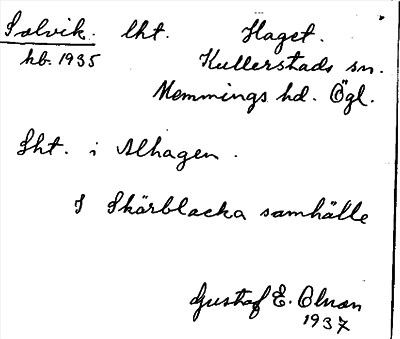 Solvik. lht. Haget.
hb. 1935 Kullerstads sn.
Memmings hd. Ögl.
Lht. i Alhagen.
I Skärblacka samhälle
Gustaf E. Olson
1937